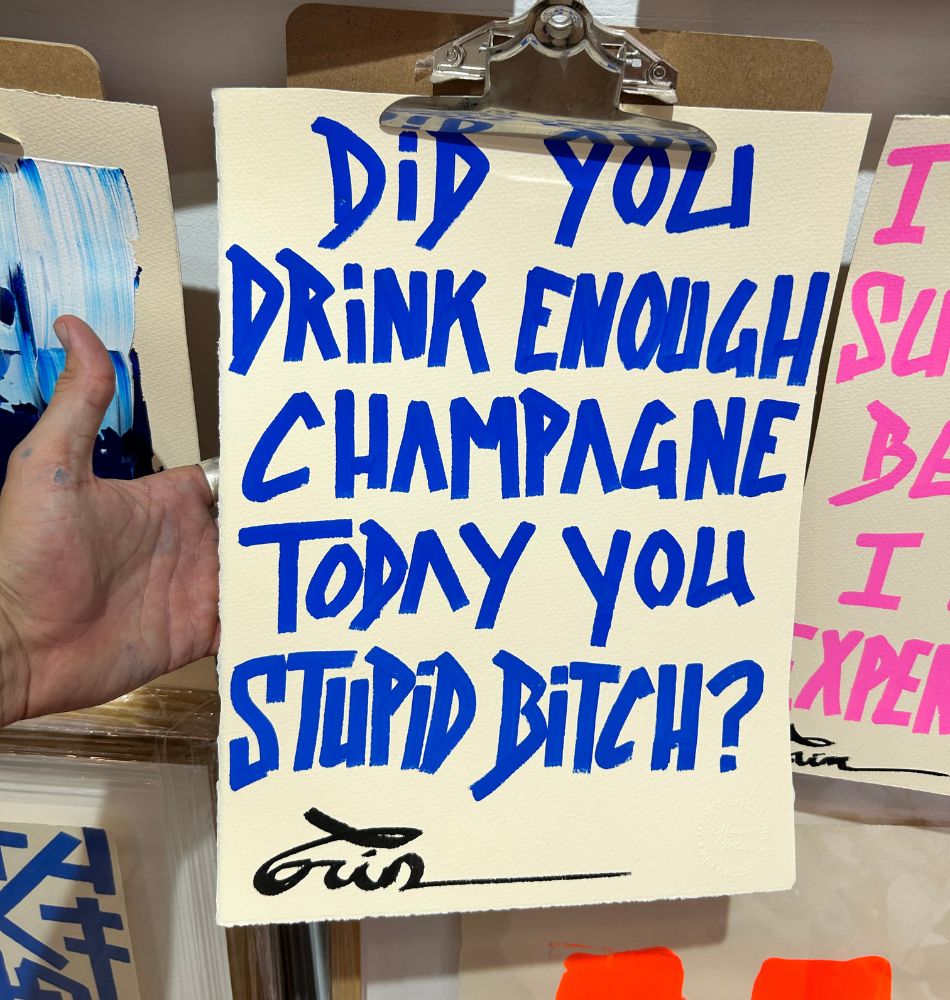 DiD YOU
DRiNK ENOUGH
CHAMPAGNE
TODAY YOU
STUPiD BiTCH?
I
SU
BE
I
EXPER